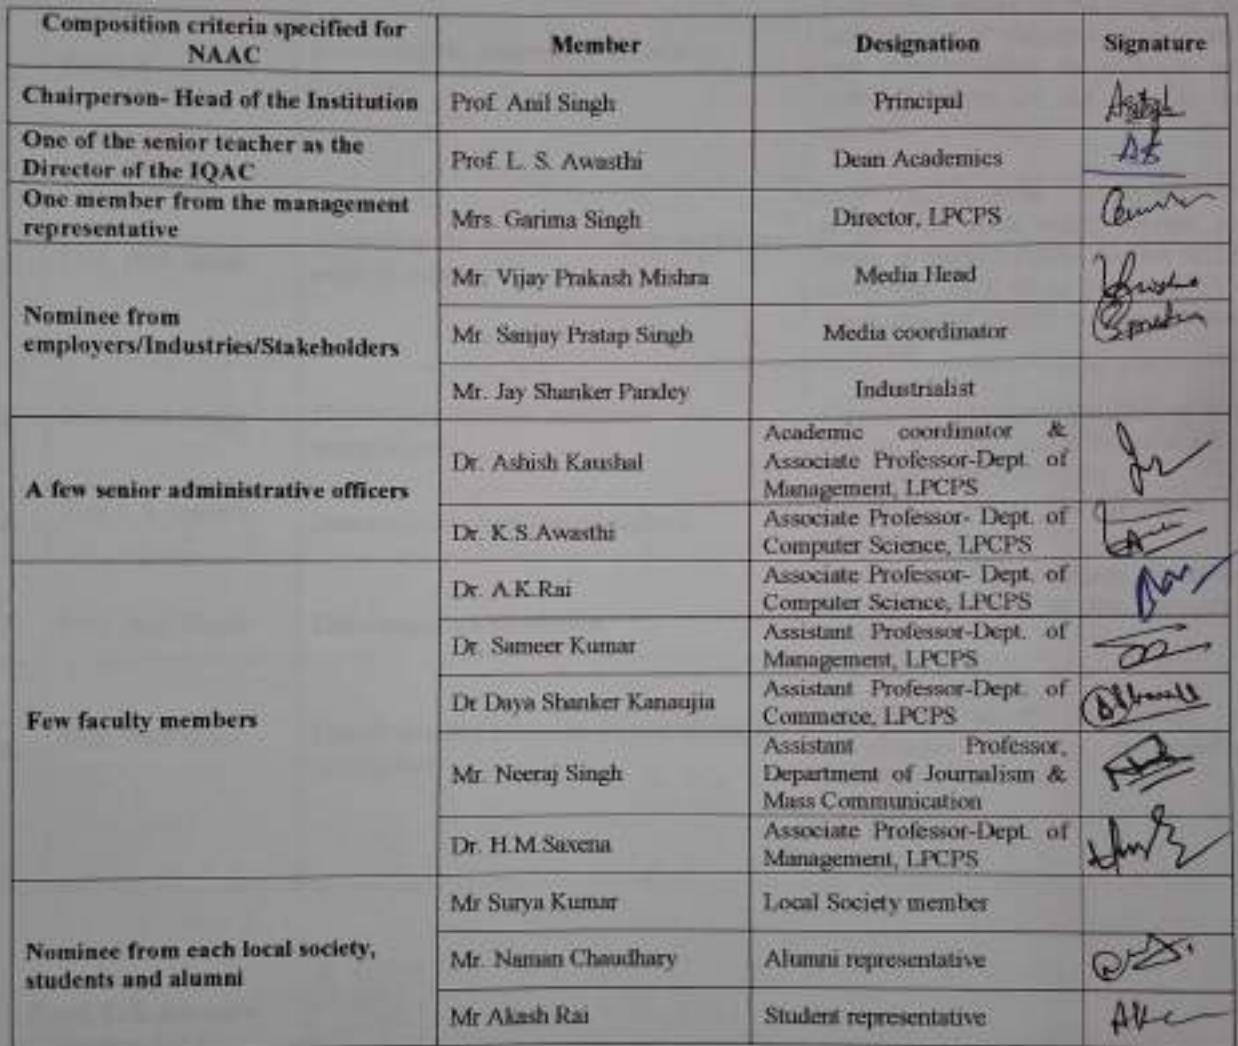 Composition criteria specified for
NAAC
Member
Designation
Signature
Chairperson- Head of the Institution
Prof. Anil Singh
Principal
One of the senior teacher as the
Director of the IQAC
Prof. L. S. Awasthi
Dean Academics
One member from the management
representative
Mrs. Garima Singh
Director, LPCPS
Nominee from
employers/Industries/Stakeholders
Mr. Vijay Prakash Mishra
Media Head
Mr. Sanjay Pratap Singh
Media coordinator
Mr. Jay Shanker Pandey
Industrialist
A few senior administrative officers
Dr. Ashish Kaushal
Academic coordinator &
Associate Professor-Dept. of
Management, LPCPS
Dr. K.S.Awasthi
Associate Professor- Dept. of
Computer Science, LPCPS
Few faculty members
Dr. A.K.Rai
Associate Professor- Dept. of
Computer Science, LPCPS
Dr. Sameer Kumar
Assistant Professor-Dept. of
Management, LPCPS
Dr Daya Shanker Kanaujia
Assistant Professor-Dept. of
Commerce, LPCPS
Mr. Neeraj Singh
Assistant Professor,
Department of Journalism &
Mass Communication
Dr. H.M.Saxena
Associate Professor-Dept. of
Management, LPCPS
Nominee from each local society,
students and alumni
Mr Surya Kumar
Local Society member
Mr. Naman Chaudhary
Alumni representative
Mr Akash Rai
Student representative